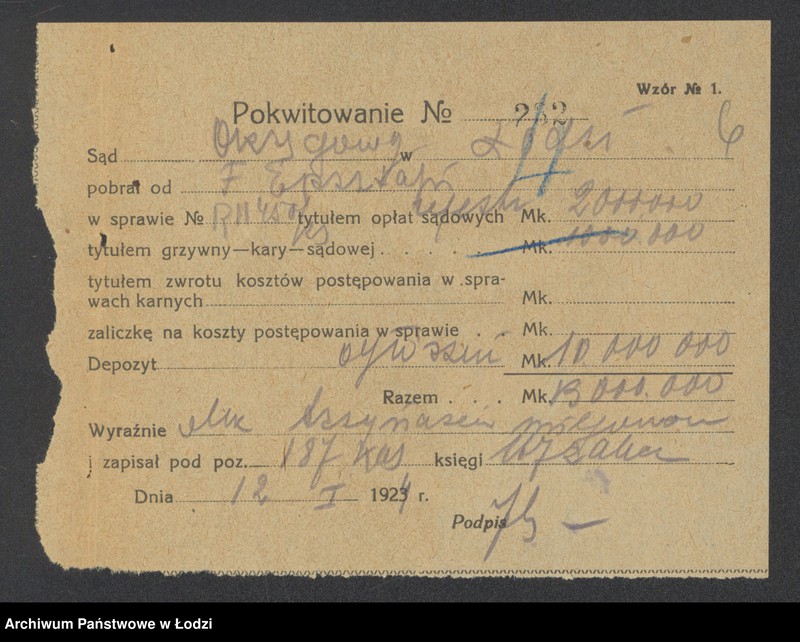 Wzór № 1.
Pokwitowanie № 232
6
Sąd Okręgowy w Łodzi
pobrał od F Epsztajn
w sprawie № tytułem opłat sądowych Mk. 2000000
tytułem grzywny—kary—sądowej . . . . Mk. 1000.000
tytułem zwrotu kosztów postępowania w spra-
wach karnych Mk.
zaliczkę na koszty postępowania w sprawie . . Mk.
Depozyt ogłoszeń Mk. 10.000 000
Razem . . . Mk. 13000.000
Wyraźnie Mk trzynaście miljonów
i zapisał pod poz. 187 kas księgi
Dnia 12 I 1924 r.
Podpis
Archiwum Państwowe w Łodzi